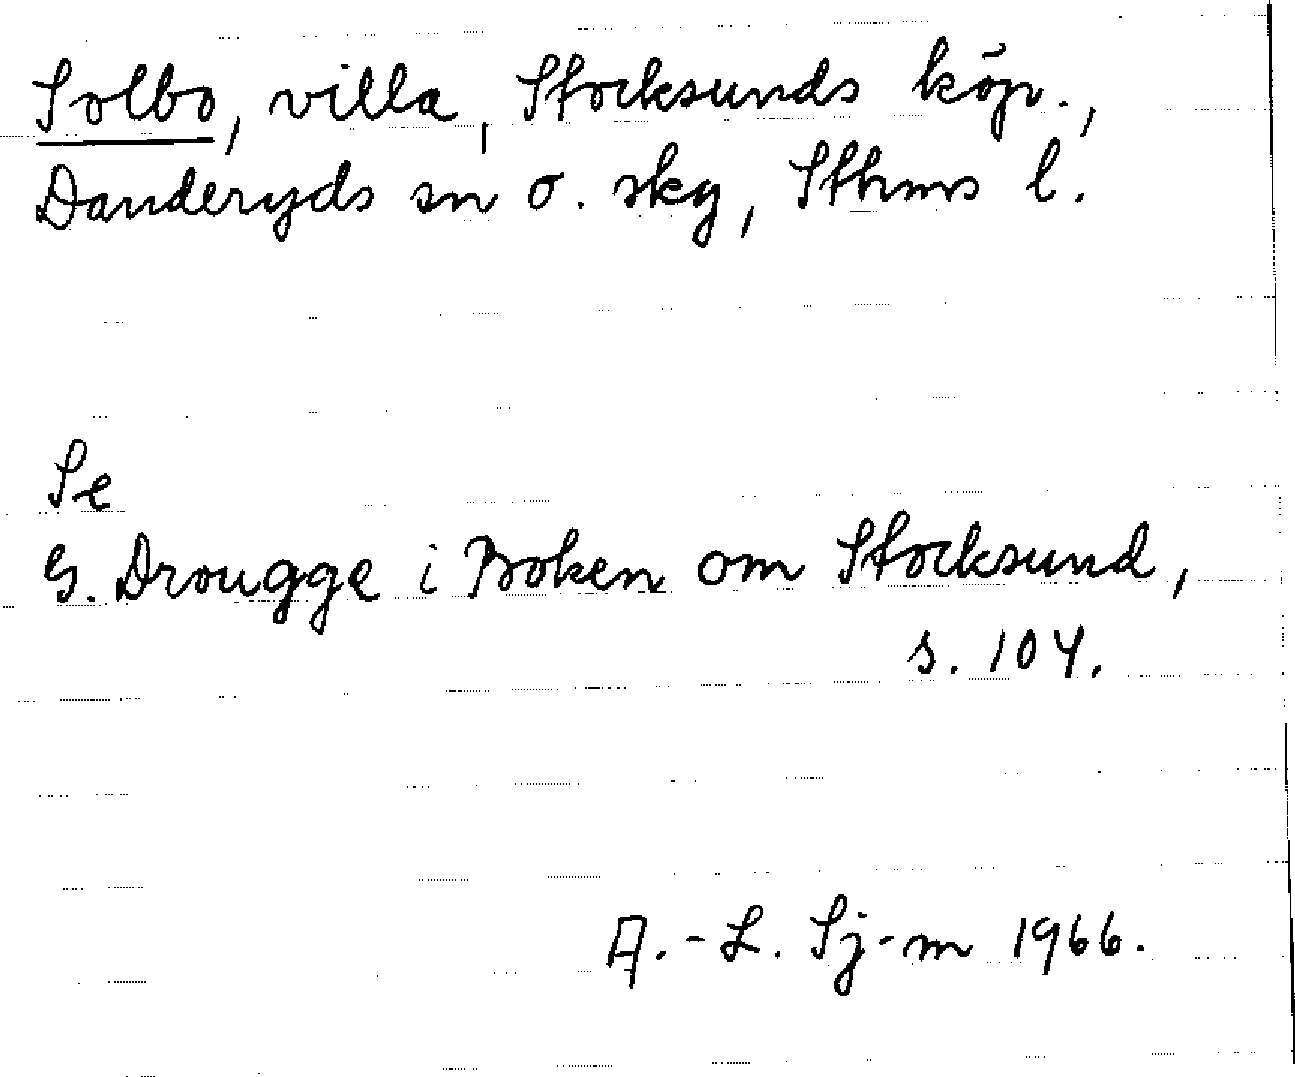 Solbo, villa, Stocksunds köp.,
Danderyds sn o. skg, Sthms l.
Se
G. Drougge i Boken om Stocksund,
s. 104.
A.-L. Sj-m 1966.